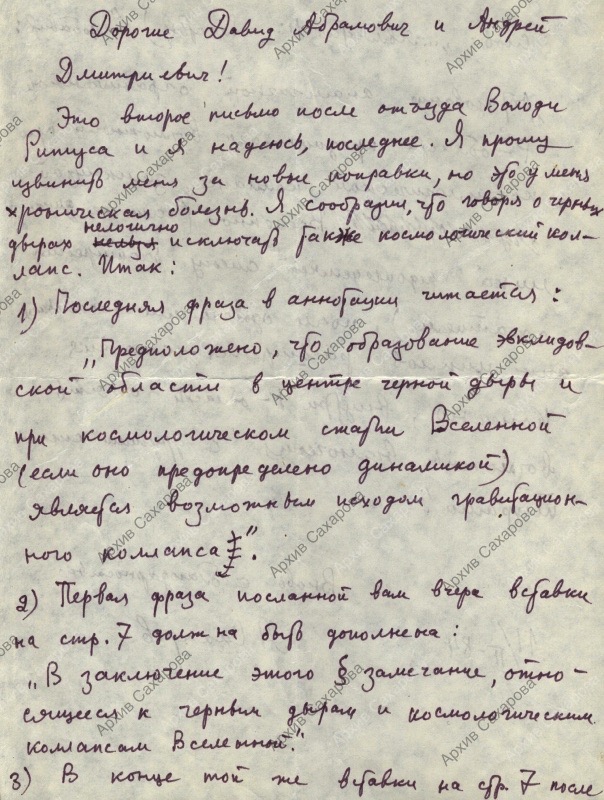 Дорогие Давид Абрамович и Андрей
Дмитриевич!
Это второе письмо после отъезда Володи
Ритуса и я надеюсь, последнее. Я прошу
извинить меня за новые поправки, но это у меня
хроническая болезнь. Я сообразил, что говоря о черных
дырах нелогично нельзя исключать также космологический кол-
лапс. Итак:
1) Последняя фраза в аннотации читается:
„Предположено, что образование эвклидов-
ской области в центре черной дыры и
при космологическом стадии Вселенной
(если оно предопределено динамикой)
является возможным исходом гравитацион-
ного коллапса".
2) Первая фраза посланной вам вчера вставки
на стр. 7 должна быть дополнена:
„В заключение этого § замечание, отно-
сящееся к черным дырам и космологическим
коллапсам Вселенной."
3) В конце той же вставки на стр. 7 после
Архив Сахарова